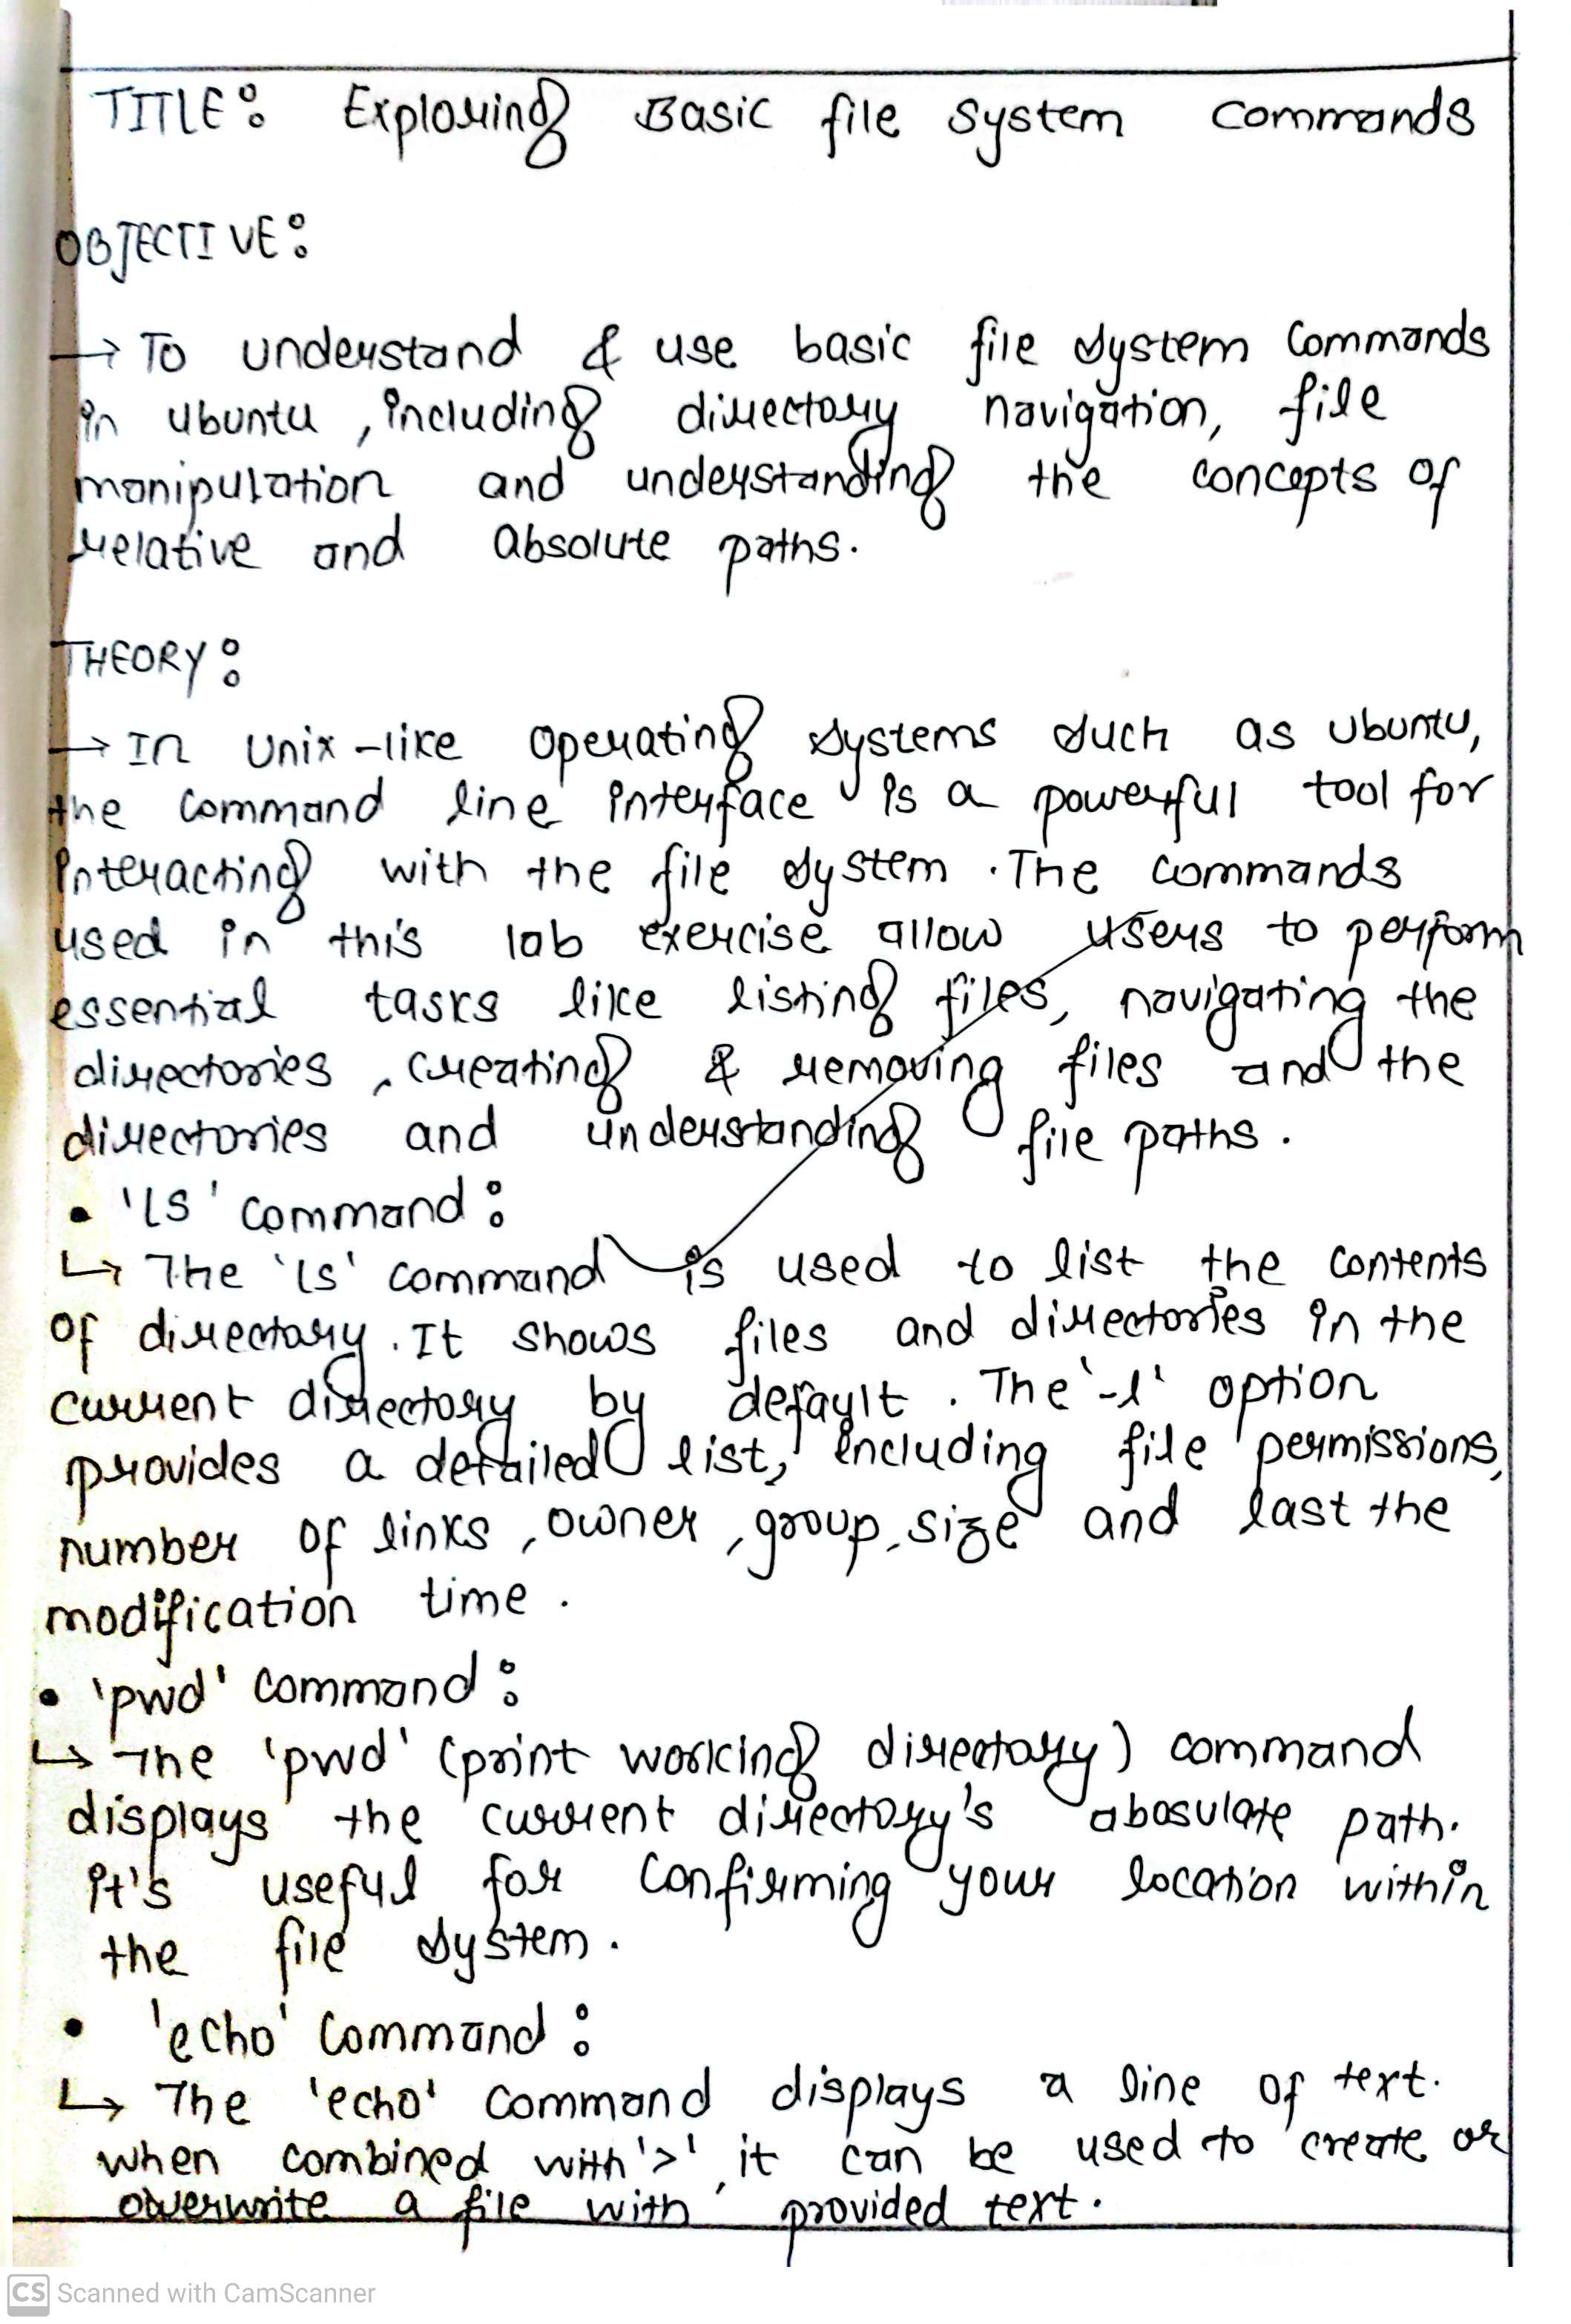 TITLE: Exploring Basic file system commands
OBJECTIVE:
→ To understand & use basic file system commands
in ubuntu, including directory navigation, file
manipulation and understanding the concepts of
relative and absolute paths.
THEORY:
→ In Unix-like operating systems such as ubuntu,
the command line interface is a powerful tool for
interacting with the file system. The commands
used in this lab exercise allow users to perform
essential tasks like listing files, navigating the
directories, creating & removing files and the
directories and understanding file paths.
• 'ls' command:
↳ The 'ls' command is used to list the contents
of directory. It shows files and directories in the
current directory by default. The '-l' option
provides a detailed list, including file permissions,
number of links, owner, group, size and last the
modification time.
• 'pwd' command:
↳ The 'pwd' (print working directory) command
displays the current directory's abosulate path.
it's useful for confirming your location within
the file system.
• 'echo' command:
↳ The 'echo' command displays a line of text.
when combined with '>', it can be used to create or
overwrite a file with provided text.
CS Scanned with CamScanner